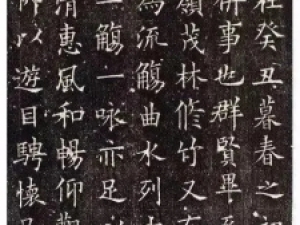 在癸丑暮春之初
禊事也群賢畢至
嶺茂林修竹又有
為流觴曲水列坐
一觴一咏亦足以
清惠風和暢仰觀
所以遊目騁懷足